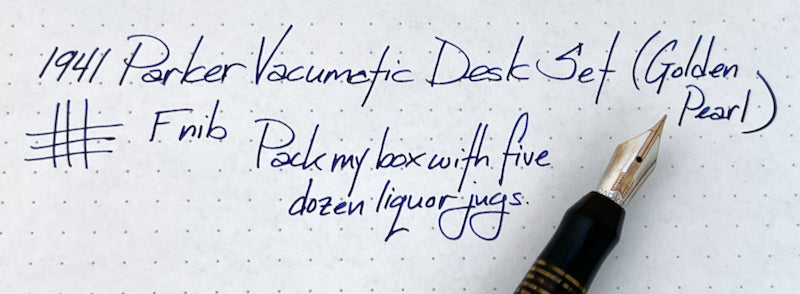 1941 Parker Vacumatic Desk Set (Golden Pearl)
F nib
Pack my box with five
dozen liquor jugs.